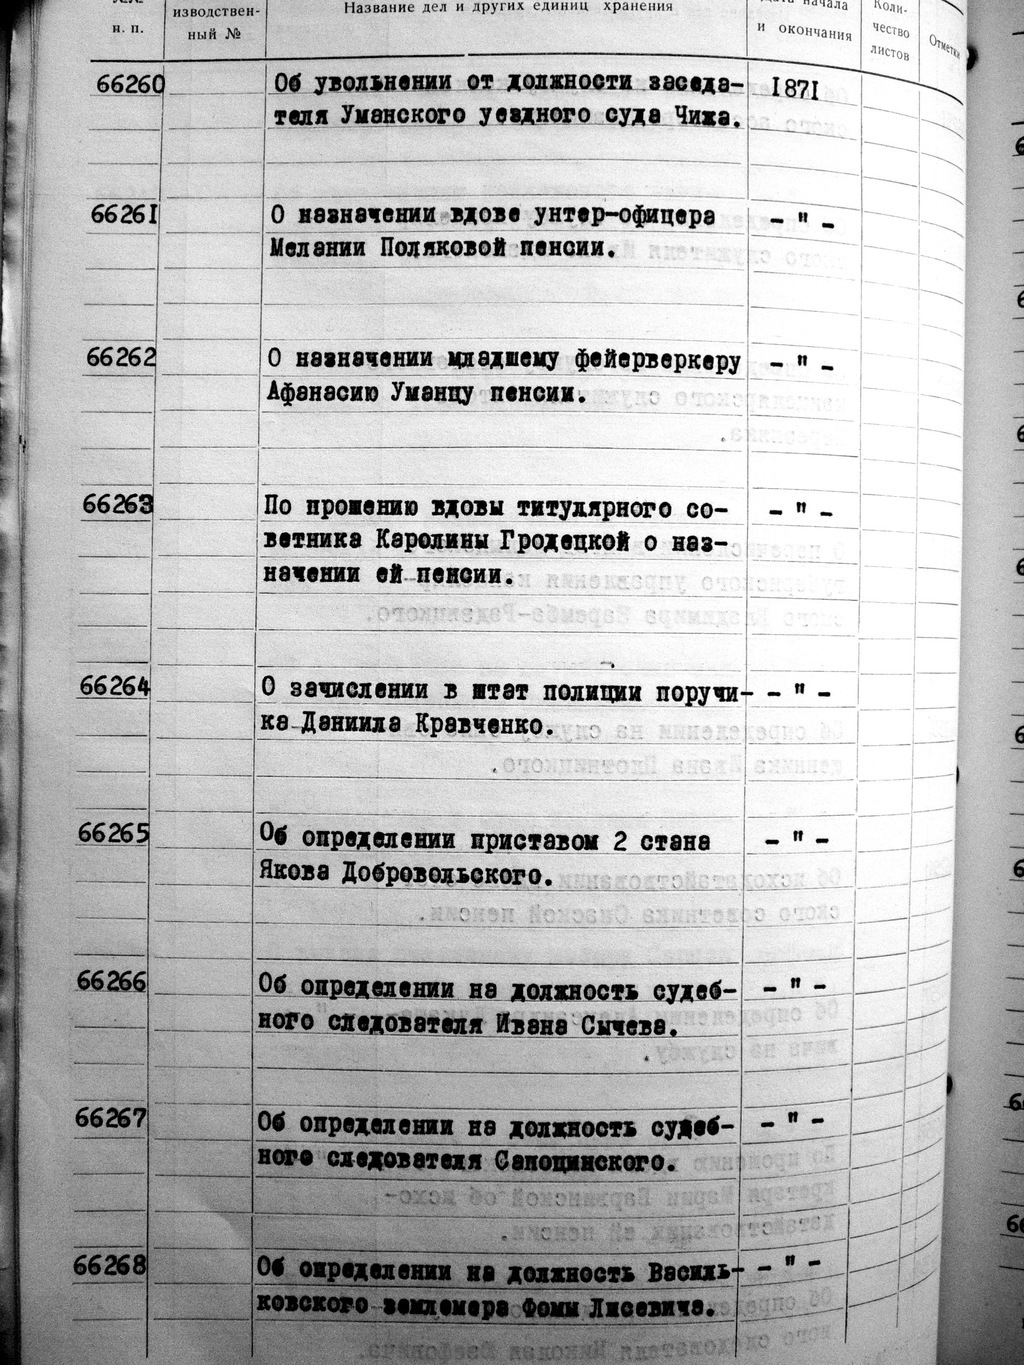 изводствен-
ный №
н. п.
Название дел и других единиц хранения
начала
и окончания
Коли-
чество
листов
Отметки
66260 Об увольнении от должности заседа- 1871
теля Уманского уездного суда Чижа.
66261 О назначении вдове унтер-офицера - " -
Мелании Поляковой пенсии.
66262 О назначении младшему фейерверкеру - " -
Афанасию Уманцу пенсии.
66263 По прошению вдовы титулярного со- - " -
ветника Каролины Гродецкой о наз-
начении ей пенсии.
66264 О зачислении в штат полиции поручи- - " -
ка Даниила Кравченко.
66265 Об определении приставом 2 стана - " -
Якова Добровольского.
66266 Об определении на должность судеб- - " -
ного следователя Ивана Сычева.
66267 Об определении на должность судеб- - " -
ного следователя Сапоцинского.
66268 Об определении на должность Василь- - " -
ковского землемера Фомы Лисевича.